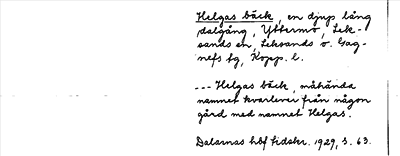 Helgas bäck, en djup lång
dalgång, Yttermo, Lek-
sands sn, Leksands o. Gag-
nefs tg, Kopp. l.
--- Helgas bäck, måhända
namnet kvarlever från någon
gård med namnet Helgas.
Dalarnas hbf tidskr. 1929, s. 63.